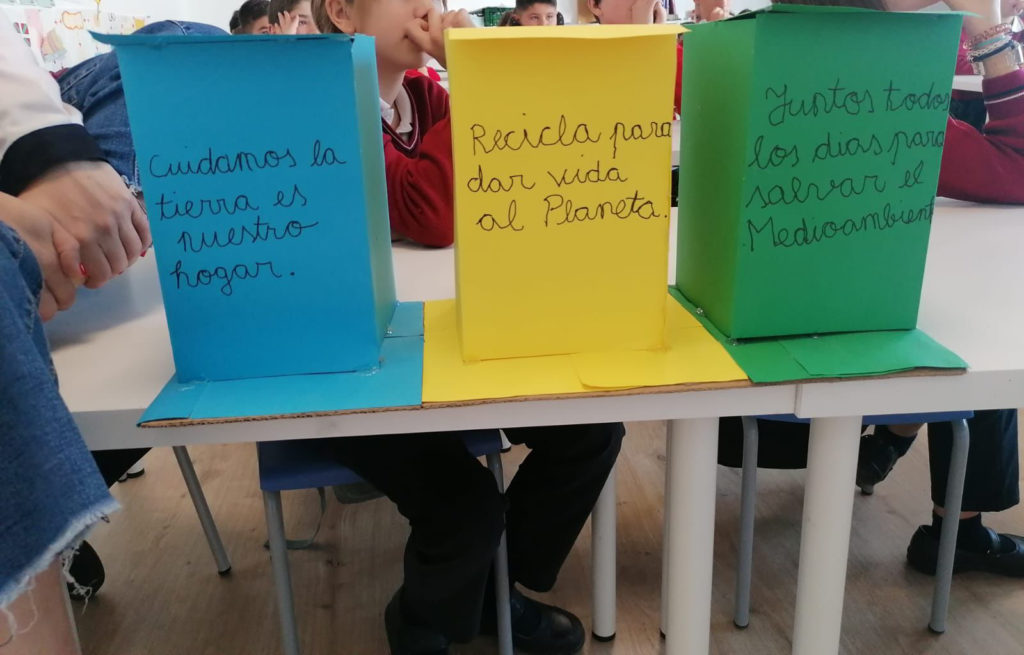 Cuidamos la
tierra es
nuestro
hogar.
Recicla para
dar vida
al Planeta.
Juntos todos
los dias para
salvar el
Medioambient